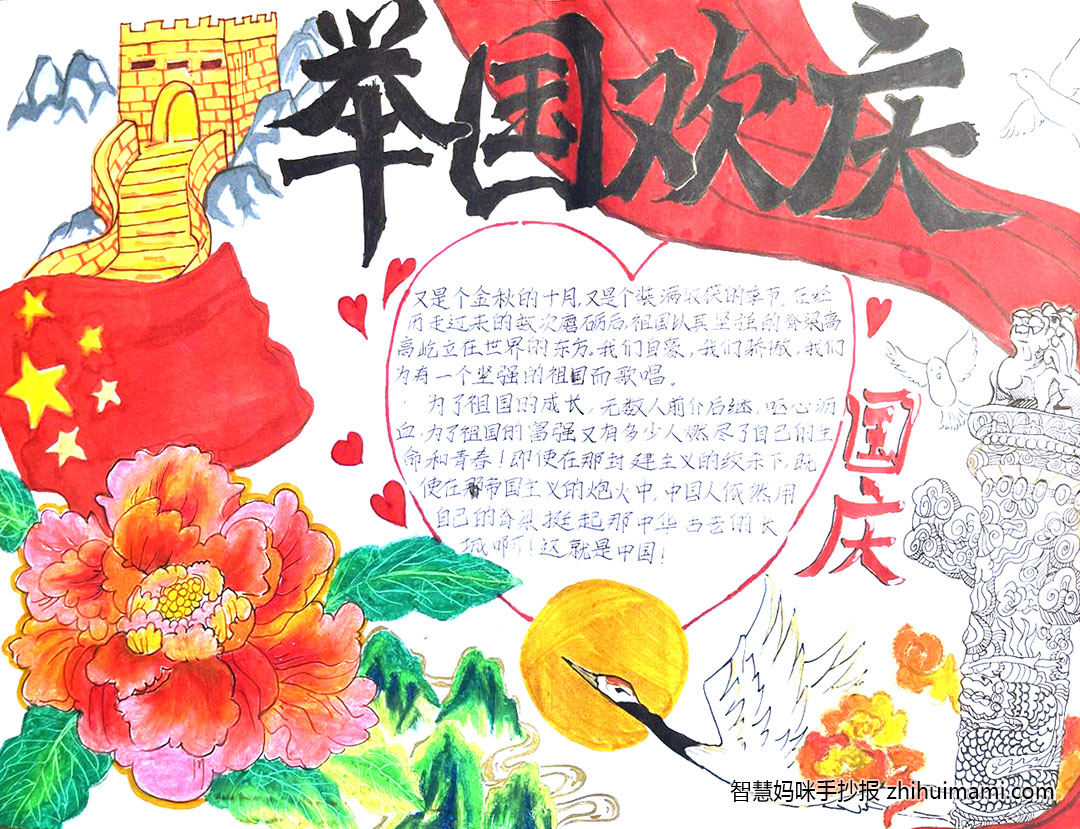 举国欢庆
又是个金秋的十月，又是个装满收获的季节，在经
历走过来的数次磨砺后，祖国以其坚强的脊梁高
高屹立在世界的东方，我们自豪，我们骄傲，我们
为有一个坚强的祖国而歌唱。
为了祖国的成长，无数人前仆后继，呕心沥
血，为了祖国的富强又有多少人燃尽了自己的生
命和青春！即使在那封建主义的绞杀下，既
使在那帝国主义的炮火中，中国人依然用
自己的脊梁挺起那中华古老的长
城啊！这就是中国！
国庆
智慧妈咪手抄报 zhihuimami.com